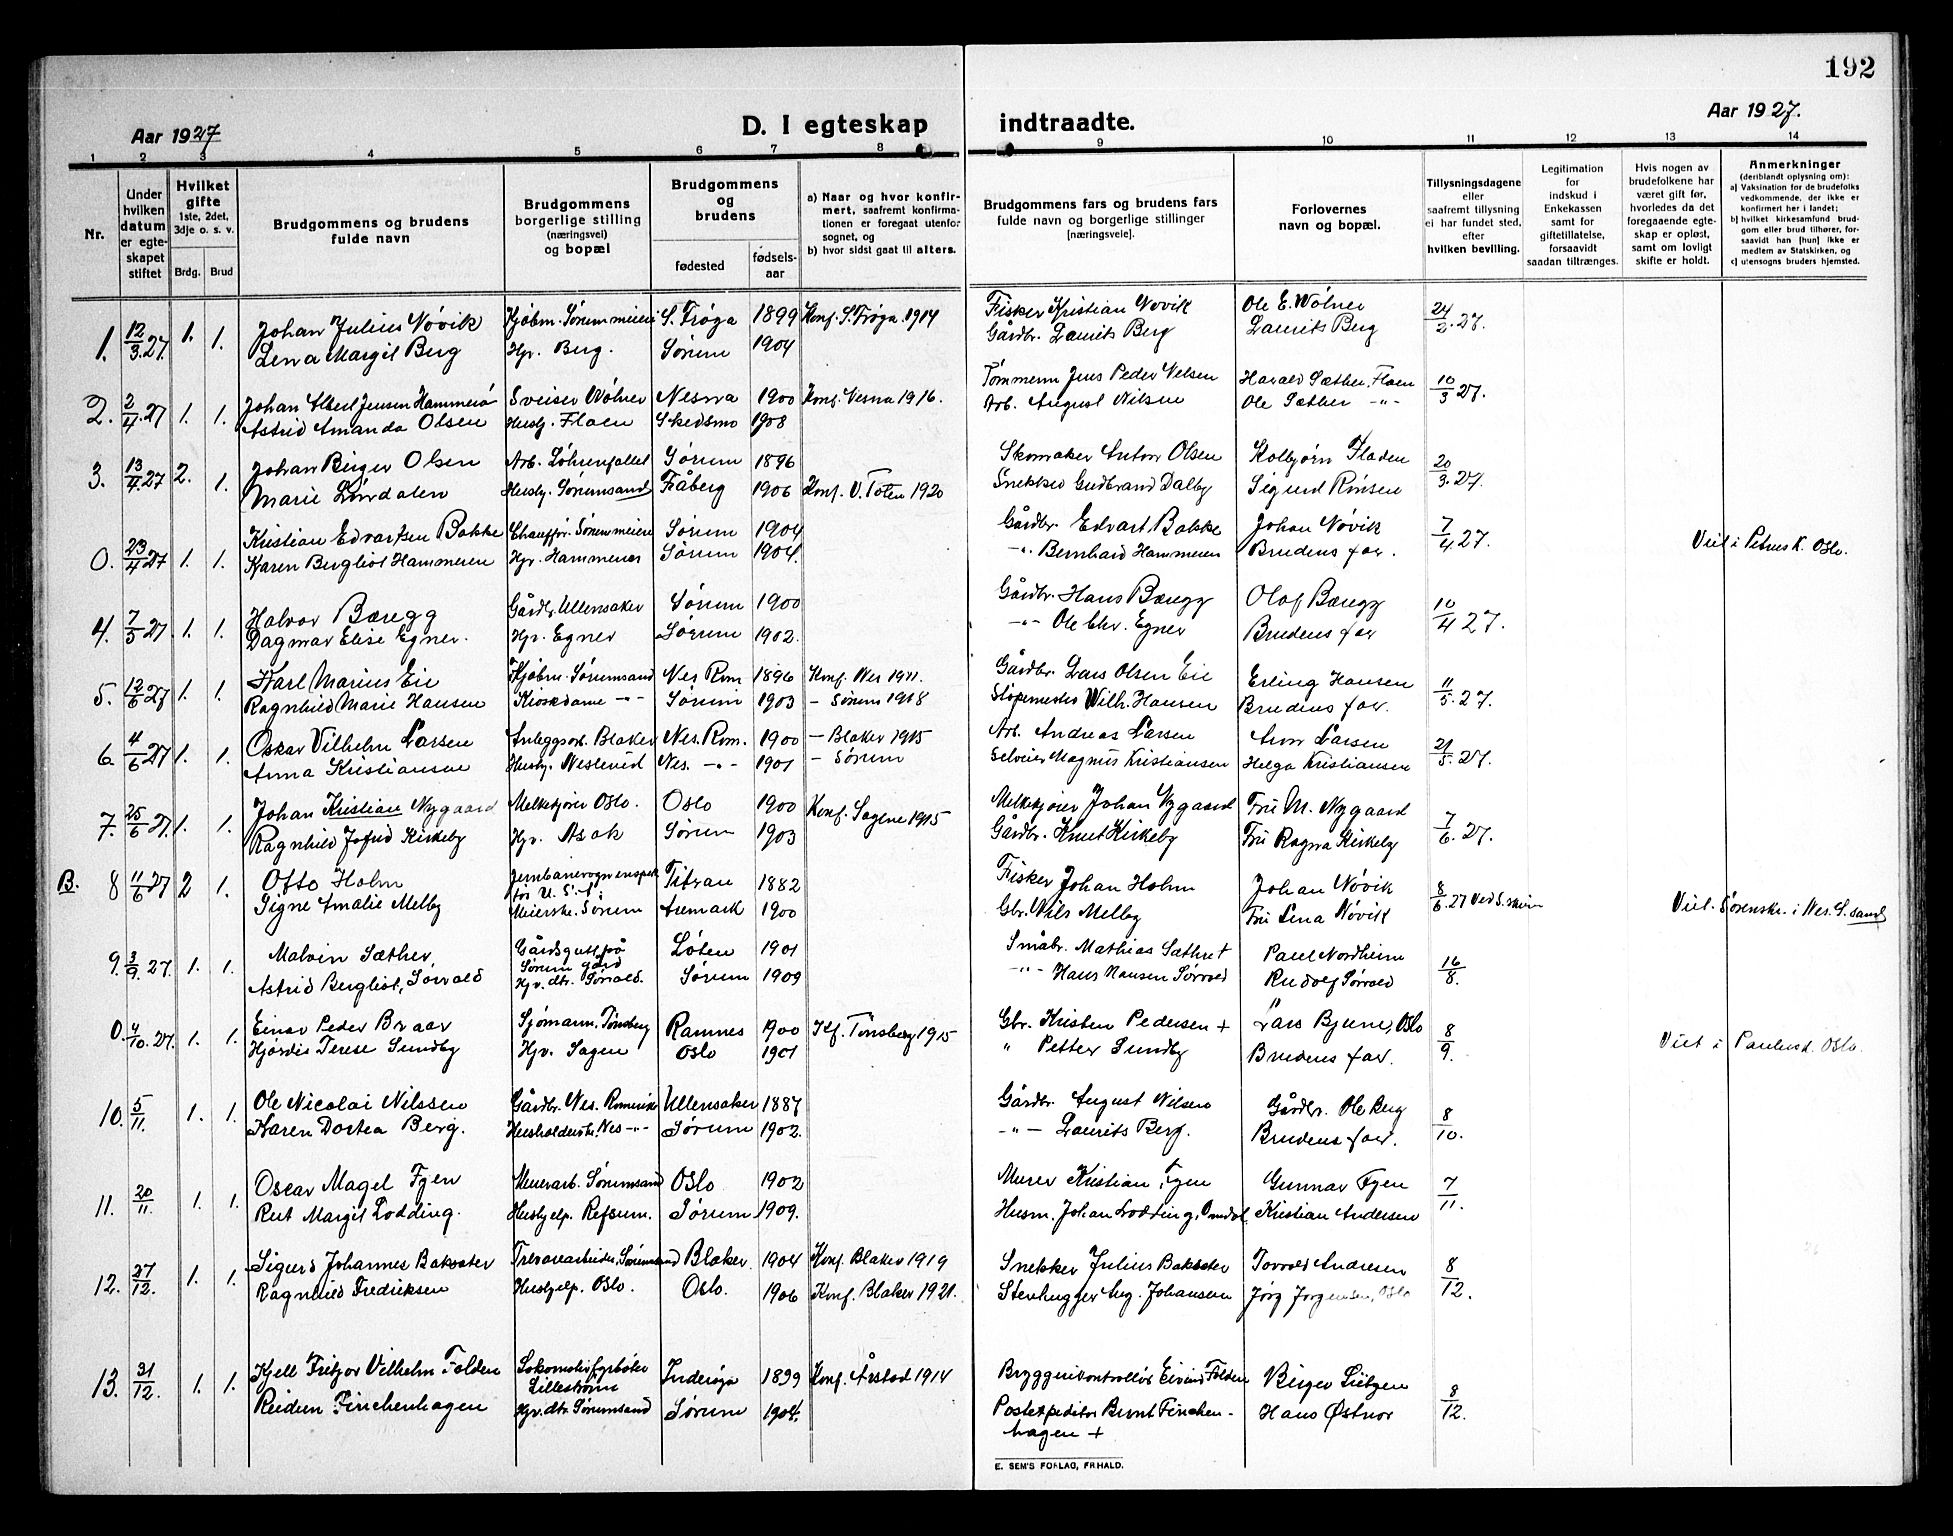 192
Aar 1927
D. I egteskap indtraadte.
Aar 1927.
1 2 3 4 5 6 7 8 9 10 11 12 13 14
Nr.
Under hvilken datum er egteskapet stiftet
Hvilket gifte 1ste, 2det, 3dje o. s. v.
Brdg. Brud
Brudgommens og brudens fulde navn
Brudgommens og brudens borgerlige stilling (næringsvei) og bopæl
Brudgommens og brudens
fødested
fødselsaar
a) Naar og hvor konfirmert, saafremt konfirmationen er foregaat utenfor sognet, og
b) hvor sidst gaat til alters.
Brudgommens fars og brudens fars fulde navn og borgerlige stillinger [næringsveie].
Forlovernes navn og bopæl.
Tillysningsdagene eller saafremt tillysning ei har fundet sted, efter hvilken bevilling.
Legitimation for indskud i Enkekassen samt for giftetillatelse, forsaavidt saadan tiltrænges.
Hvis nogen av brudefolkene har været gift før, hvorledes da det foregaaende egteskap er opløst, samt om lovligt skifte er holdt.
Anmerkninger
(deriblandt oplysning om):
a) Vaksination for de brudefolks vedkommende, der ikke er konfirmert her i landet;
b) hvilket kirkesamfund brudgom eller brud tilhører, forsaavidt han [hun] ikke er medlem av Statskirken, og
c) utensogns bruders hjemsted.
1. 12/3.27. 1. 1. Johan Julius Növik Kjøbm. Sørum meieri S. Frøya 1899 Konf. S. Frøya. 1914 Fisker Kristian Novik Ole E. Wölner 24/2.27.
Lena Margit Berg Hjv. Berg. Sørum 1904 Gårdbr. Laurits Berg Laurits Berg
2. 2/4.27 1. 1. Johan Albert Jensen Hammerö Sveiser Wölner Nesna 1900 Konf. Nesna 1916. Tømmerm Jens Peder Nelsen Harald Sæther, Floen 10/3 27.
Astrid Amanda Olsen Hushj. Floen Skedsmo 1908 Arb. August Nilsen Ole Sæther -"-
3. 13/4 27 2. 1. Johan Birger Olsen Arb. Løhrenfallet Sørum 1896 Skomaker Anton Olsen Kolbjørn Fladen 20/3.27.
Marie Lövdalen Hushj. Sørumsand Fåberg 1906 Konf. V. Toten 1920 Snekker Gudbrand Dalby Sigurd Rönsen
0. 23/4 27 1. 1. Kristian Edvartsen Bakke Chauffør. Sørum meieri Sørum 1904 Gårdbr. Edvart Bakke Johan Növik 7/4 27. Viet i Petrus K. Oslo.
Karen Bergliot Hammeren Hjv. Hammeren Sørum 1904. -"- Bernhard Hammeren Brudens far.
4. 7/5 27. 1. 1. Halvor Bæregg Gårdb. Ullensaker Sørum 1900 Gårdbr. Hans Bæregg Olaf Bæregg 10/4 27.
Dagmar Elise Egner. Hjv. Egner Sørum 1902. -"- Ole Chr. Egner Brudens far
5. 12/6 27 1. 1. Karl Marius Eie Kjøbm. Sørumsand Nes Rom. 1896 Konf. Nes 1911. Gårdbr. Lars Olsen Eie Erling Hansen 11/5.27.
Ragnhild Marie Hansen Kioskdame -"- Sørum 1903 - Sørum 1918 Wilh. Hansen Brudens far.
6. 4/6 27 1. 1. Oskar Vilhelm Larsen Anleggsarb. Blaker Nes. Rom. 1900 - Blaker 1915 Arb. Andreas Larsen Larsen 21/5.27.
Anna Kristiansen Hushj. Nes. -"- 1901 - Sørum Selveier Magnus Kristiansen Helga Kristiansen
7. 25/6 27. 1. 1. Johan Kristian Nygaard Melkekjører Oslo. Oslo 1900 Konf. Sagene 1915 Melkekjører Johan Nygaard Fru M. Nygaard 7/6.27.
Ragnhild Jofrid Kirkeby Hjv. Asak Sørum 1903 Gårdbr. Knut Kirkeby Fru Ragna Kirkeby
B. 8 11/6 27 2 1. Otto Holm Jernbanevognenspektør U. S. A. Titran 1882 Fisker Johan Holm Johan Növik 8/6.27 Ved S. skriv Viet. Sørenskr. i Nes. S. sand
Signe Amalie Melby Meierske. Sørum Aremark 1900 Gbr. Nils Melby Fru Lina Növik
9. 3/9. 27. 1. 1. Malvin Sæther, Gårdsgutt på Sørum gård Løten 1901 Småbr. Mathias Sæther + Paul Nordheim 16/8.
Astrid Bergliot, Sørvald Hjv. dtr. Sørvald. Sørum 1909 -"- Hans Hansen Sørvald Rudolf Sørvald
0. 4/10.27. 1. 1. Einar Peder Braar Sjømann, Tønsberg Ramnes 1900 Kf. Tønsberg 1915 Gbr. Kristen Pedersen + Lars Bjune, Oslo 8/9. Viet i Paulusk. Oslo.
Hjördis Terese Sundby Hjv. Sagen Oslo 1901 " Petter Sundby Brudens far.
10. 5/11. 1. 1. Ole Nicolai Nilssen Gårdbr. Nes. Romerike Ullensaker 1887 Gårdbr. August Nilsen Gårdbr. Ole Berg 8/10.
Karen Dortea Berg. Husholderske. Nes -"- Sørum 1902. -"- Laurits Berg. Brudens far.
11. 20/11. 1. 1. Oscar Magel Fgen Murerarb. Sørumsand Oslo 1902 Murer Kristian Fgen Gunnar Fgen 7/11.
Rut Margit Lodding. Hushjelp. Refsum. Sørum 1909. Husm. Johan Lodding, Kristian Andersen
12. 27/12. 1. 1. Sigurd Johannes Baksæter Trevarearbeider, Sørumsand Blaker. 1904 Konf. Blaker 1919 Snekker Julius Baksæter Torvald Andresen 8/12.
Ragnhild Fredriksen Hushjelp. Oslo. Oslo. 1906 Konf. Blaker 1921. Stenhugger Aug. Johansen Jörg Jørgensen, Oslo
13. 31/12. 1. 1. Kjell Fritjov Vilhelm Folden Lokomotivfyrbøter Lillestrøm Inderøya 1899 Konf. Årstad 1914 Bryggerikontrollør Eivind Folden Birger Lützen 8/12.
Reidun Finckenhagen Hjv. dtr. Sørumsand Sørum 1904. Postexpeditør Bernt Finckenhagen + Hans Østnor
E. SEM'S FORLAG, FR.HALD.